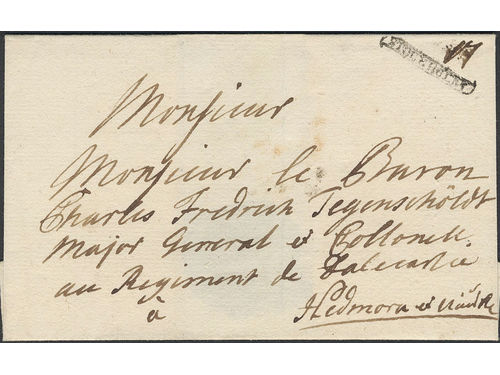 STOCKHOLM
Monsieur
Monsieur le Baron
Charles Fredrich Tegenschöldt
Major General et Collonell
au Regiment de Dalecarlie
à
Hedmora et